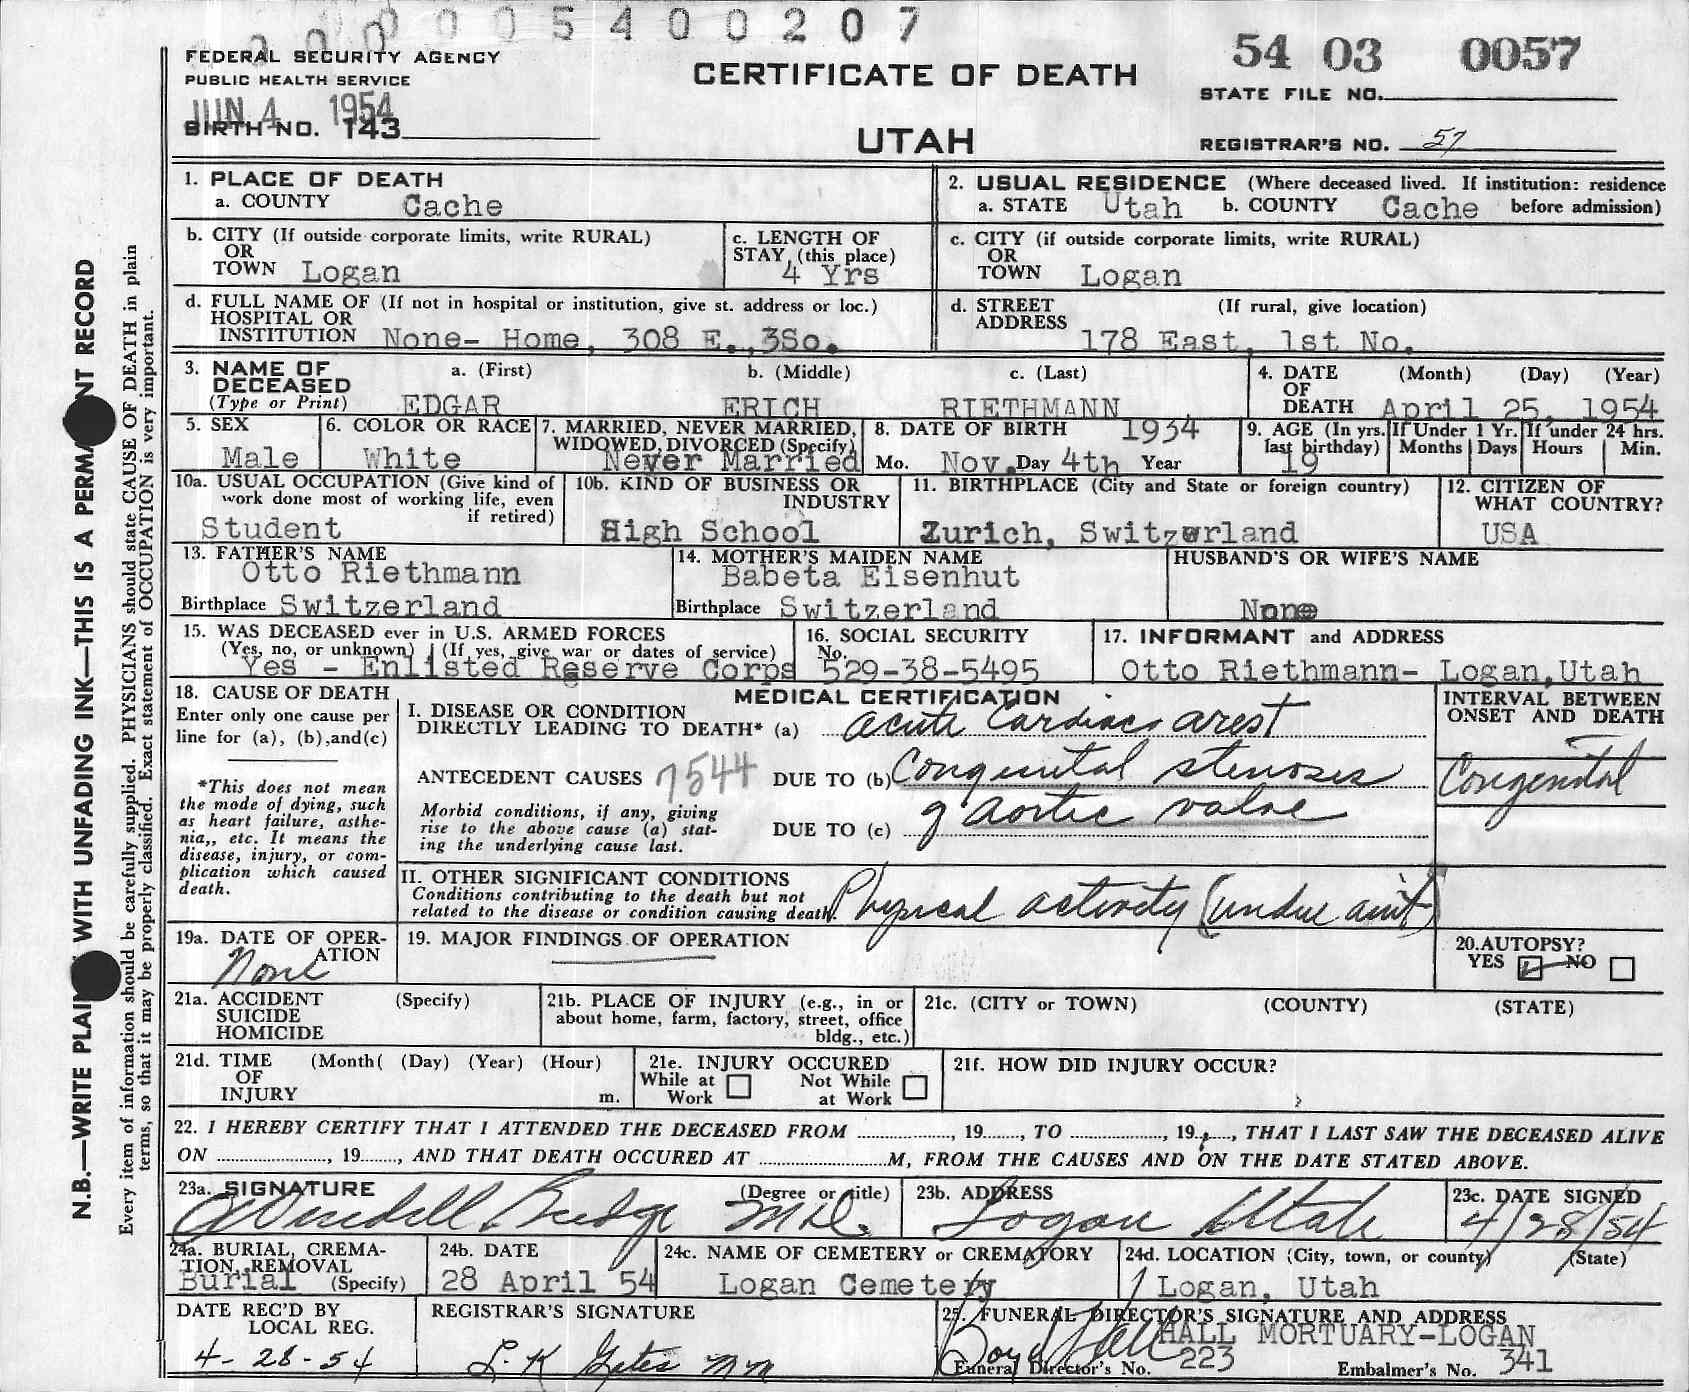 0 0 0 0 5 4 0 0 2 0 7
FEDERAL SECURITY AGENCY
PUBLIC HEALTH SERVICE
JUN 4 1954
BIRTH NO. 143
CERTIFICATE OF DEATH
UTAH
54 03 0057
STATE FILE NO.
REGISTRAR'S NO. 57
N.B.—WRITE PLAI WITH UNFADING INK—THIS IS A PERMA NT RECORD
Every item of information should be carefully supplied. PHYSICIANS should state CAUSE OF DEATH in plain
terms, so that it may be properly classified. Exact statement of OCCUPATION is very important.
1. PLACE OF DEATH
a. COUNTY Cache
2. USUAL RESIDENCE (Where deceased lived. If institution: residence
a. STATE Utah b. COUNTY Cache before admission)
b. CITY (If outside corporate limits, write RURAL)
OR
TOWN Logan
c. LENGTH OF
STAY (this place)
4 Yrs
c. CITY (if outside corporate limits, write RURAL)
OR
TOWN Logan
d. FULL NAME OF (If not in hospital or institution, give st. address or loc.)
HOSPITAL OR
INSTITUTION None- Home, 308 E. ,3So.
d. STREET (If rural, give location)
ADDRESS 178 East, 1st No.
3. NAME OF a. (First) b. (Middle) c. (Last)
DECEASED
(Type or Print) EDGAR ERICH RIETHMANN
4. DATE (Month) (Day) (Year)
OF
DEATH April 25, 1954
5. SEX
Male
6. COLOR OR RACE
White
7. MARRIED, NEVER MARRIED,
WIDOWED, DIVORCED (Specify)
Never Married
8. DATE OF BIRTH 1934
Mo. Nov. Day 4th Year
9. AGE (In yrs.
last birthday)
19
If Under 1 Yr.
Months Days
If under 24 hrs.
Hours Min.
10a. USUAL OCCUPATION (Give kind of
work done most of working life, even
if retired)
Student
10b. KIND OF BUSINESS OR
INDUSTRY
High School
11. BIRTHPLACE (City and State or foreign country)
Zurich, Switzerland
12. CITIZEN OF
WHAT COUNTRY?
USA
13. FATHER'S NAME
Otto Riethmann
Birthplace Switzerland
14. MOTHER'S MAIDEN NAME
Babeta Eisenhut
Birthplace Switzerland
HUSBAND'S OR WIFE'S NAME
None
15. WAS DECEASED ever in U.S. ARMED FORCES
(Yes, no, or unknown) (If yes, give war or dates of service)
Yes - Enlisted Reserve Corps
16. SOCIAL SECURITY
No.
529-38-5495
17. INFORMANT and ADDRESS
Otto Riethmann- Logan,Utah
18. CAUSE OF DEATH
Enter only one cause per
line for (a), (b),and(c)
*This does not mean
the mode of dying, such
as heart failure, asthe-
nia,, etc. It means the
disease, injury, or com-
plication which caused
death.
MEDICAL CERTIFICATION
I. DISEASE OR CONDITION
DIRECTLY LEADING TO DEATH* (a) acute Cardiac arest
ANTECEDENT CAUSES 7544 DUE TO (b) Congenital stenoses
Morbid conditions, if any, giving
rise to the above cause (a) stat-
ing the underlying cause last.
DUE TO (c) of aortic valve
INTERVAL BETWEEN
ONSET AND DEATH
Congenital
II. OTHER SIGNIFICANT CONDITIONS
Conditions contributing to the death but not
related to the disease or condition causing death.
Physical activity (undue
19a. DATE OF OPER-
ATION
None
19. MAJOR FINDINGS OF OPERATION
20.AUTOPSY?
YES NO
21a. ACCIDENT (Specify)
SUICIDE
HOMICIDE
21b. PLACE OF INJURY (e.g., in or
about home, farm, factory, street, office
bldg., etc.)
21c. (CITY or TOWN) (COUNTY) (STATE)
21d. TIME (Month( (Day) (Year) (Hour)
OF
INJURY m.
21e. INJURY OCCURED
While at Not While
Work at Work
21f. HOW DID INJURY OCCUR?
22. I HEREBY CERTIFY THAT I ATTENDED THE DECEASED FROM ................, 19......., TO ................, 19......, THAT I LAST SAW THE DECEASED ALIVE
ON ..................., 19......., AND THAT DEATH OCCURED AT .....................M, FROM THE CAUSES AND ON THE DATE STATED ABOVE.
23a. SIGNATURE (Degree or title)
Wendell Budge M.D.
23b. ADDRESS
Logan Utah
23c. DATE SIGNED
4/28/54
24a. BURIAL, CREMA-
TION, REMOVAL
Burial (Specify)
24b. DATE
28 April 54
24c. NAME OF CEMETERY or CREMATORY
Logan Cemetery
24d. LOCATION (City, town, or county) (State)
Logan, Utah
DATE REC'D BY
LOCAL REG.
4-28-54
REGISTRAR'S SIGNATURE
L. K Gates
25. FUNERAL DIRECTOR'S SIGNATURE AND ADDRESS
Boyd Hall HALL MORTUARY-LOGAN
Funeral Director's No. 223 Embalmer's No. 341